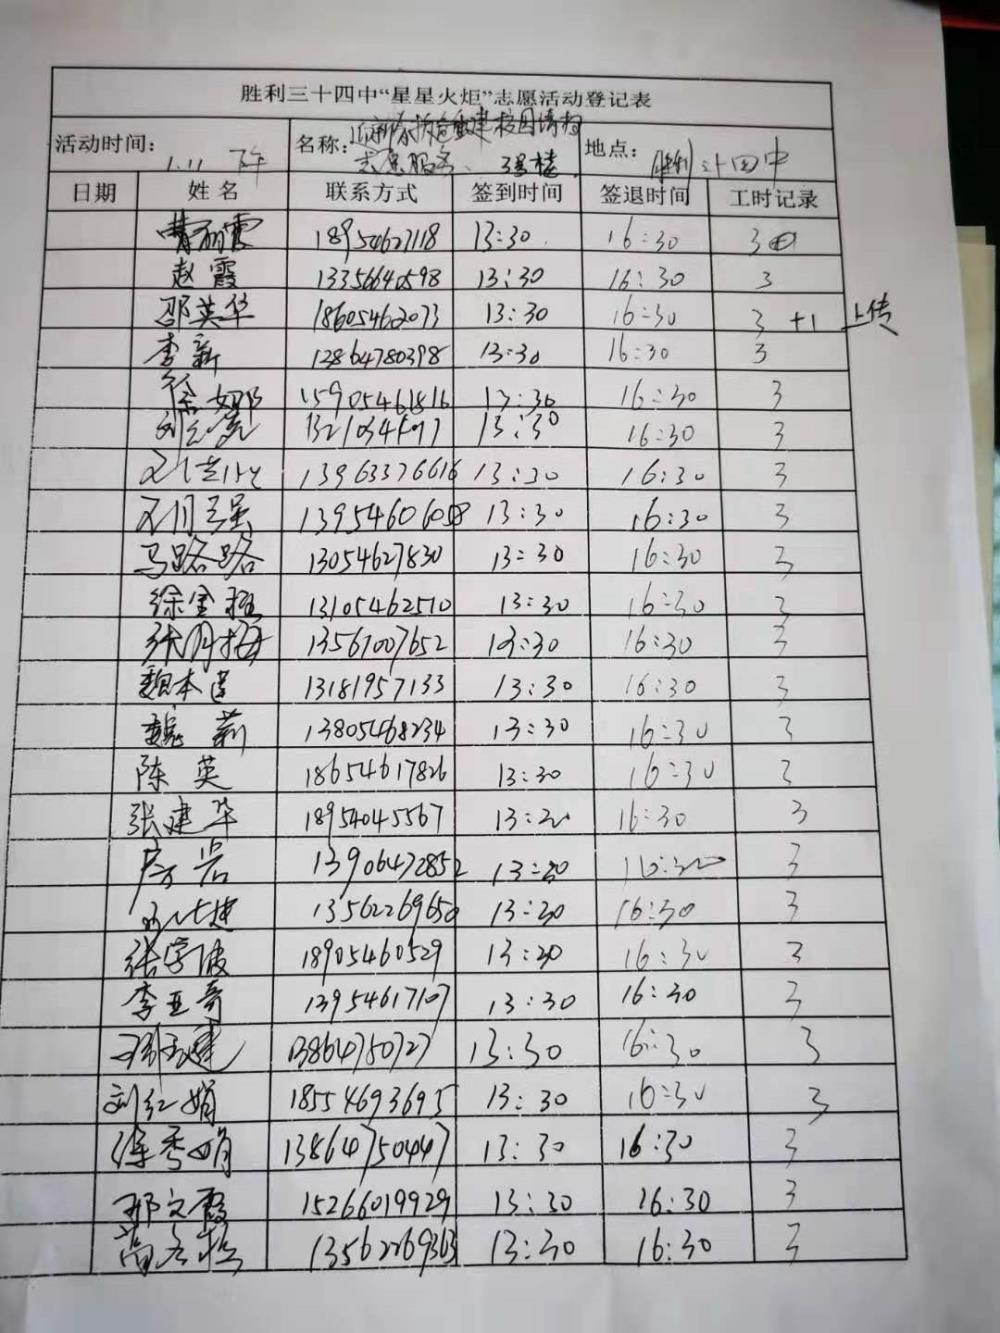 胜利三十四中“星星火炬”志愿活动登记表
活动时间: 1.11 下午 名称: 志愿服务、3号楼 地点: 胜利三十四中
日期 姓名 联系方式 签到时间 签退时间 工时记录
曹丽霞 18954627118 13:30 16:30 3
赵霞 13356640598 13:30 16:30 3
邵英华 18605462073 13:30 16:30 3 +1 上传
李新 12864780398 13:30 16:30 3
徐娜 15905461816 13:30 16:30 3
13:30 16:30 3
13963376616 13:30 16:30 3
13954606058 13:30 16:30 3
马路路 13054627830 13:30 16:30 3
徐金 13105462510 13:30 16:30 3
张月梅 13561007652 13:30 16:30 3
魏本 13181957133 13:30 16:30 3
魏莉 13805468234 13:30 16:30 3
陈英 18654617826 13:30 16:30 3
张建华 18954045567 13:30 16:30 3
房岩 13906472852 13:30 16:30 3
13562269650 13:30 16:30 3
张学波 18905460529 13:30 16:30 3
李亚奇 13954617107 13:30 16:30 3
13864750727 13:30 16:30 3
刘红娟 18554693695 13:30 16:30 3
徐秀娟 13864750447 13:30 16:30 3
邢文霞 15266019929 13:30 16:30 3
13562269363 13:30 16:30 3